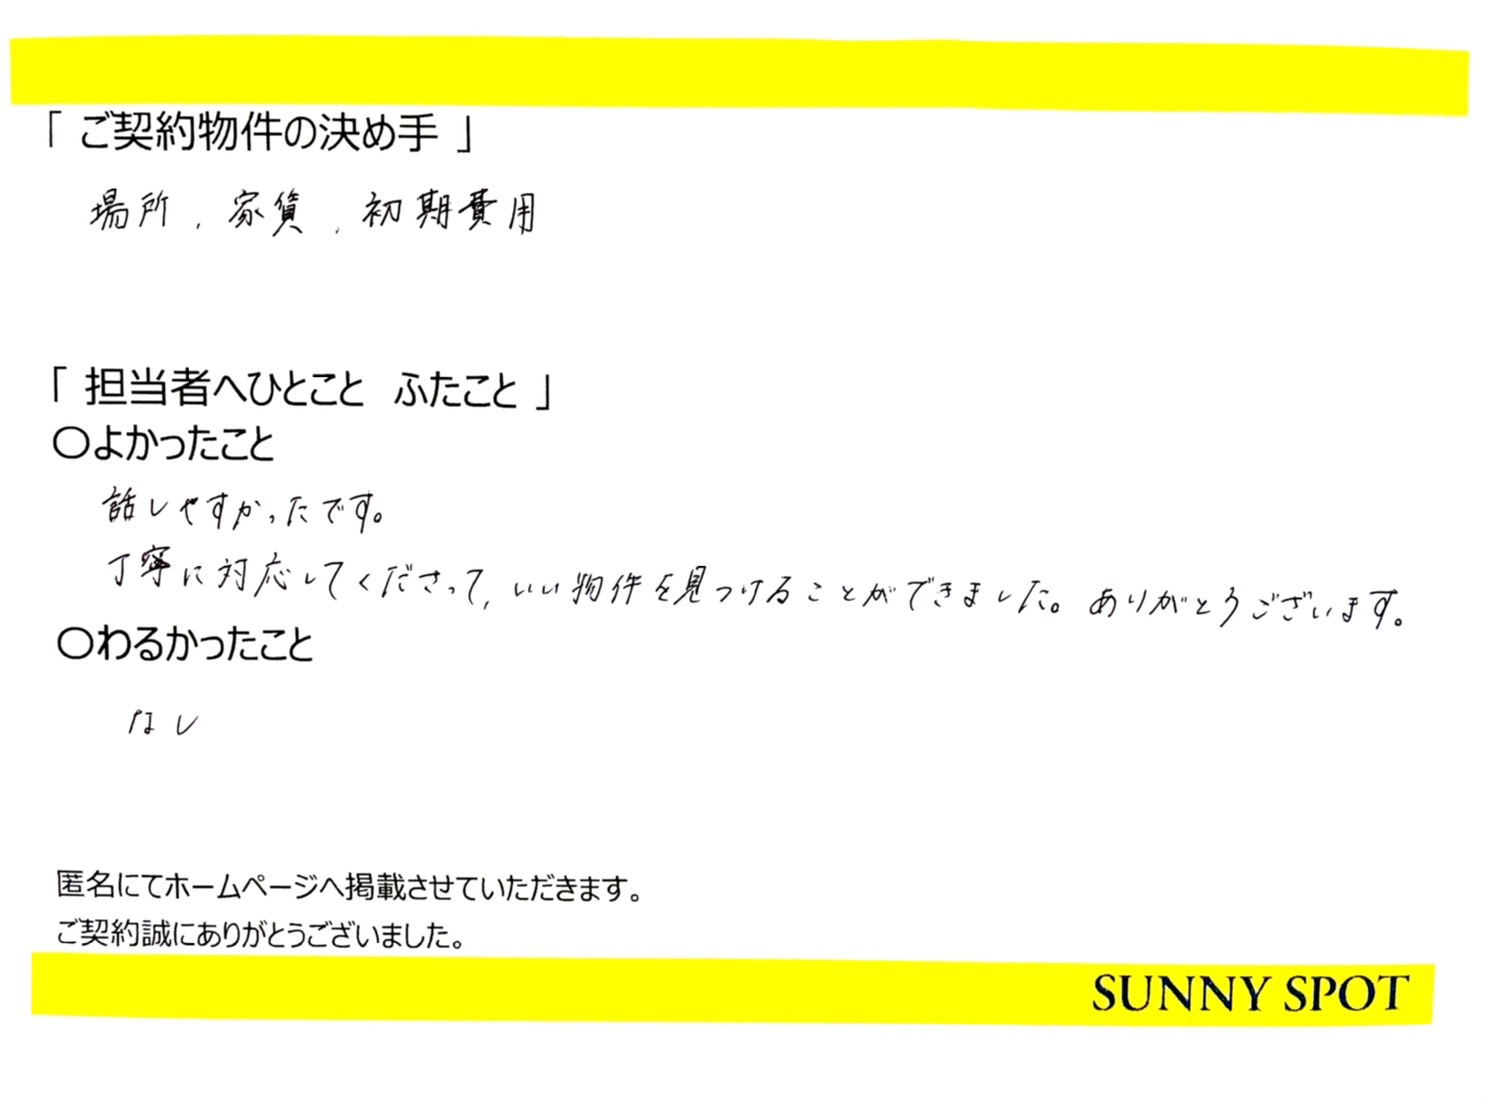 「 ご契約物件の決め手 」
場所、家賃、初期費用
「 担当者へひとこと ふたこと 」
〇よかったこと
話しやすかったです。
丁寧に対応してくださって、いい物件を見つけることができました。ありがとうございます。
〇わるかったこと
なし
匿名にてホームページへ掲載させていただきます。
ご契約誠にありがとうございました。
SUNNY SPOT